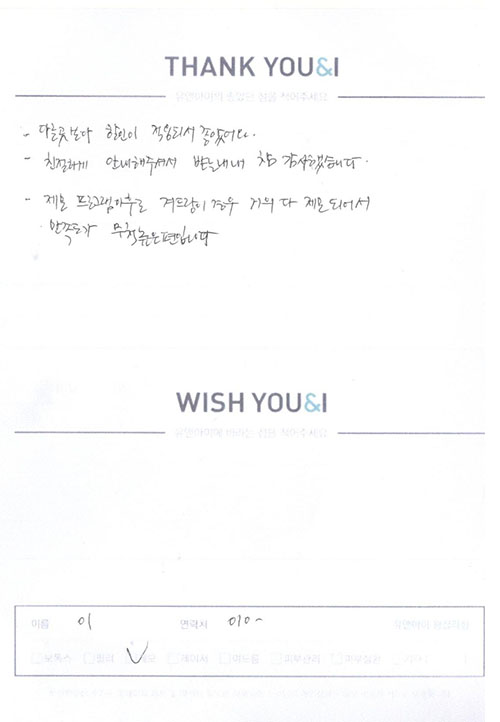 THANK YOU&I
유앤아이의 좋았던 점을 적어주세요
- 다른곳보다 할인이 적용되서 좋았어요.
- 친절하게 안내해주셔서 받는내내 참 감사했습니다.
- 제모 프로그램마추고 겨드랑이 경우 거의 다 제모되어서
만족도가 무척 좋은편입니다
WISH YOU&I
유앤아이에 바라는 점을 적어주세요
이름 이 연락처 010- 유앤아이
보톡스 필러 제모 레이저 여드름 피부관리 피부질환 기타( )